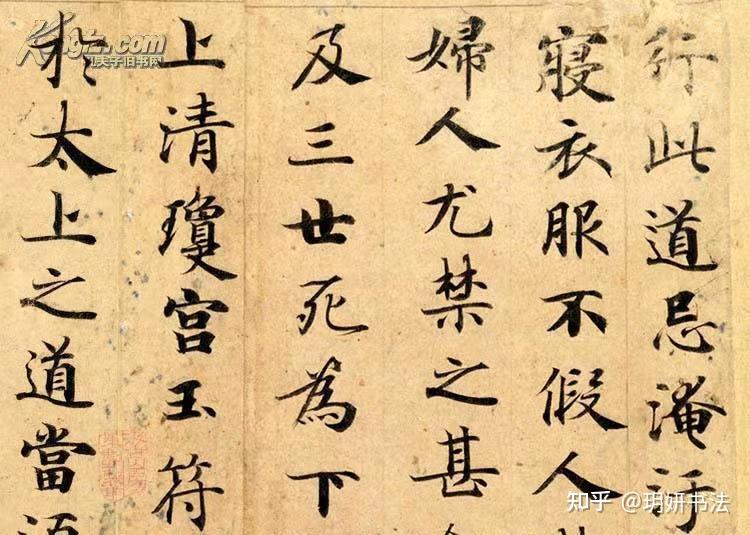 行此道忌淹汙
寢衣服不假人
婦人尤禁之甚
及三世死為下
上清瓊宮玉符
於太上之道當
Kongfz.com
孔夫子旧书网
知乎 @玥妍书法